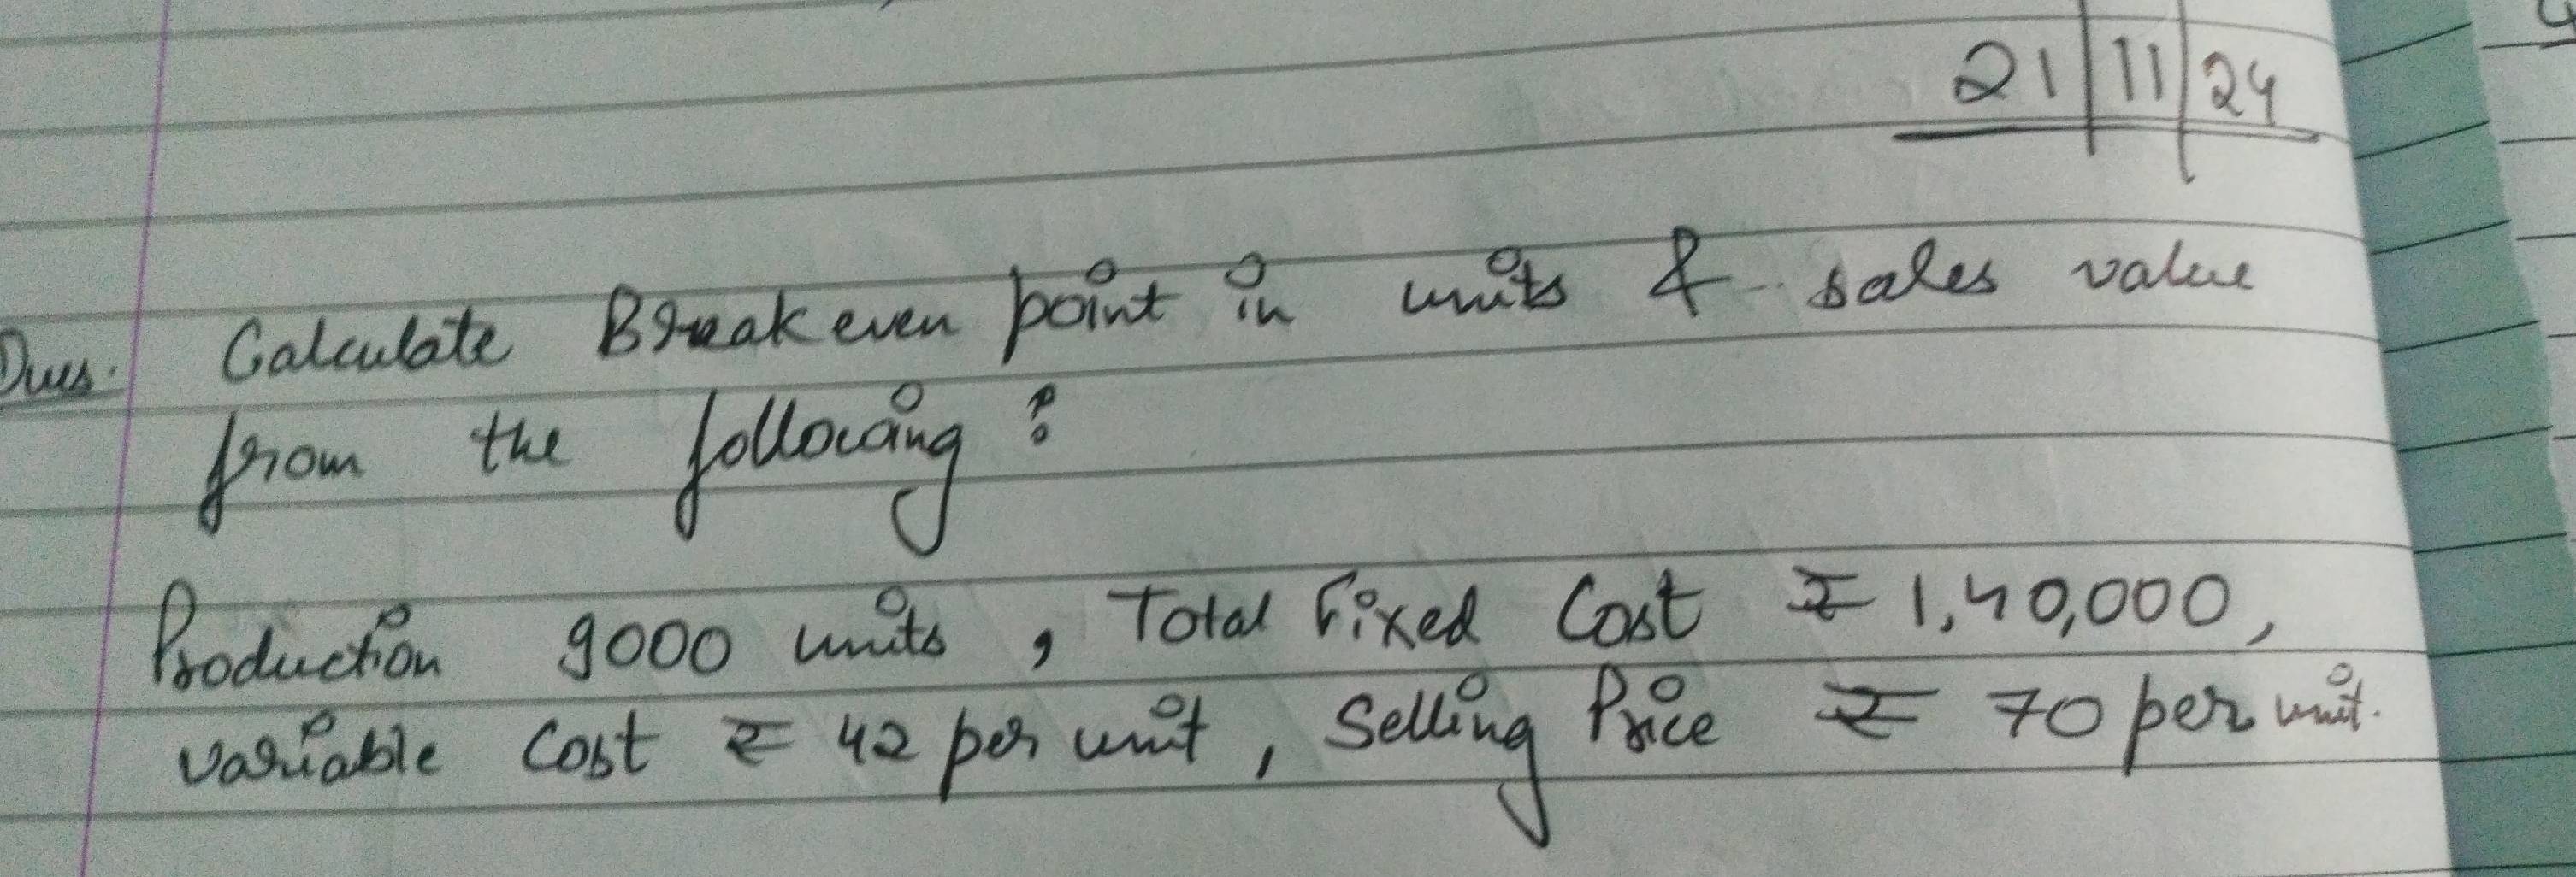 21/11/24
Ques. Calculate Break even point in units & sales value
from the following:
Production 9000 units, Total Fixed Cost ₹ 1,40,000,
variable Cost ₹ 42 per unit, Selling Price ₹ 70 per unit.